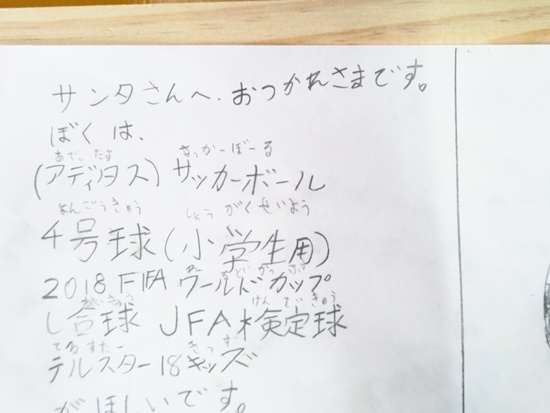 サンタさんへ、おつかれさまです。
ぼくは、
あでぃたす さっかーぼーる
(アディタス) サッカーボール
よんごうきゅう しょうがくせいよう
4号球(小学生用)
どかっぷ
2018 FIFA ワールドカップ
あいきゅう けんていきゅう
し合球 JFA検定球
てるすたー きっず
テルスター18キッズ
がほしいです。